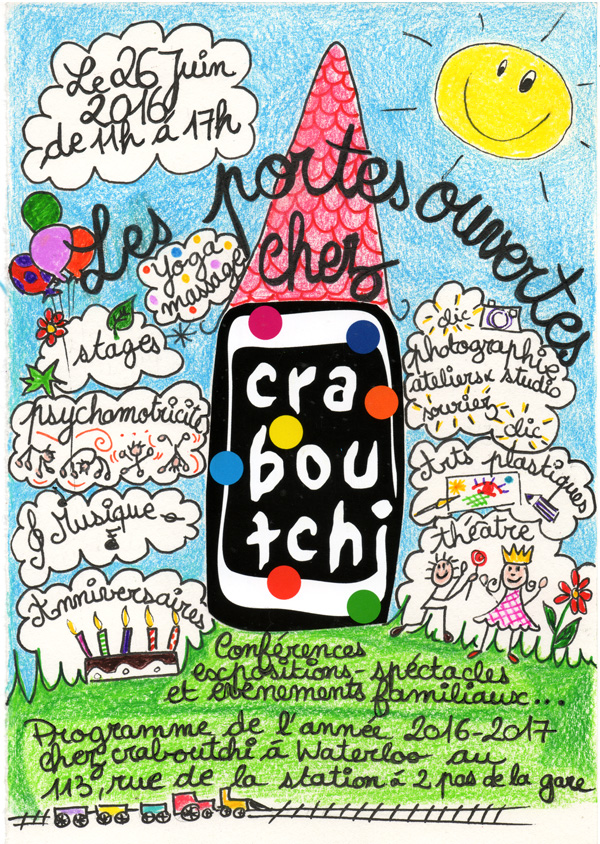 Le 26 Juin
2016
de 11h à 17h
Les portes ouvertes
chez
cra
bou
tchi
yoga
massage
stages
psychomotricité
Musique
Anniversaires
clic
photographie
ateliers x studio
souriez
clic
Arts plastiques
théatre
Conférences
expositions - spéctacles
et évènements familiaux...
Programme de l'année 2016-2017
chez craboutchi à Waterloo au
113, rue de la station à 2 pas de la gare